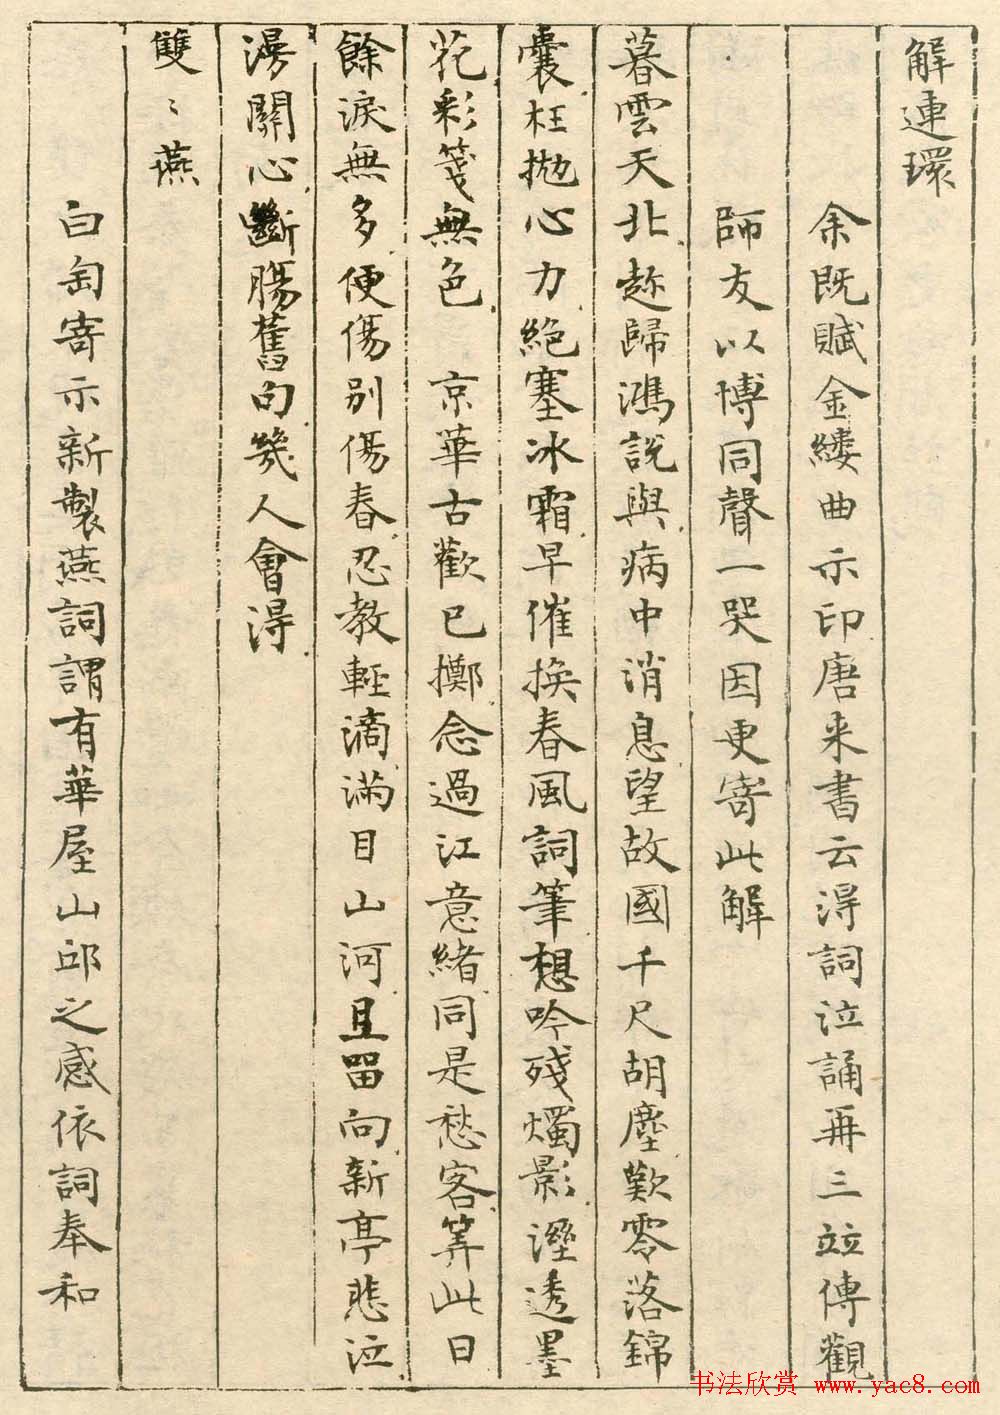 解連環
余既賦金縷曲示印唐来書云淂詞泣誦再三竝傳觀
師友以博同聲一哭因更寄此解
暮雲天北趂歸鴻説與病中消息望故國千尺胡塵歎零落錦
囊枉拋心力絶塞冰霜早催換春風詞筆想吟殘燭影溼透墨
花彩箋無色　京華古歡已擲念過江意緒同是愁客筭此日
餘淚無多便傷别傷春忍教輕滴滿目山河且留向新亭悲泣
漫關心斷腸舊句幾人會淂
雙〻燕
白匋寄示新製燕詞謂有華屋山邱之感依詞奉和
书法欣赏 www.yac8.com